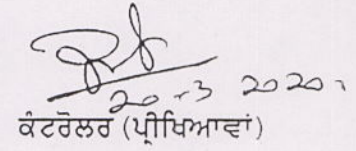 20-3 2020
ਕੰਟਰੋਲਰ (ਪ੍ਰੀਖਿਆਵਾਂ)